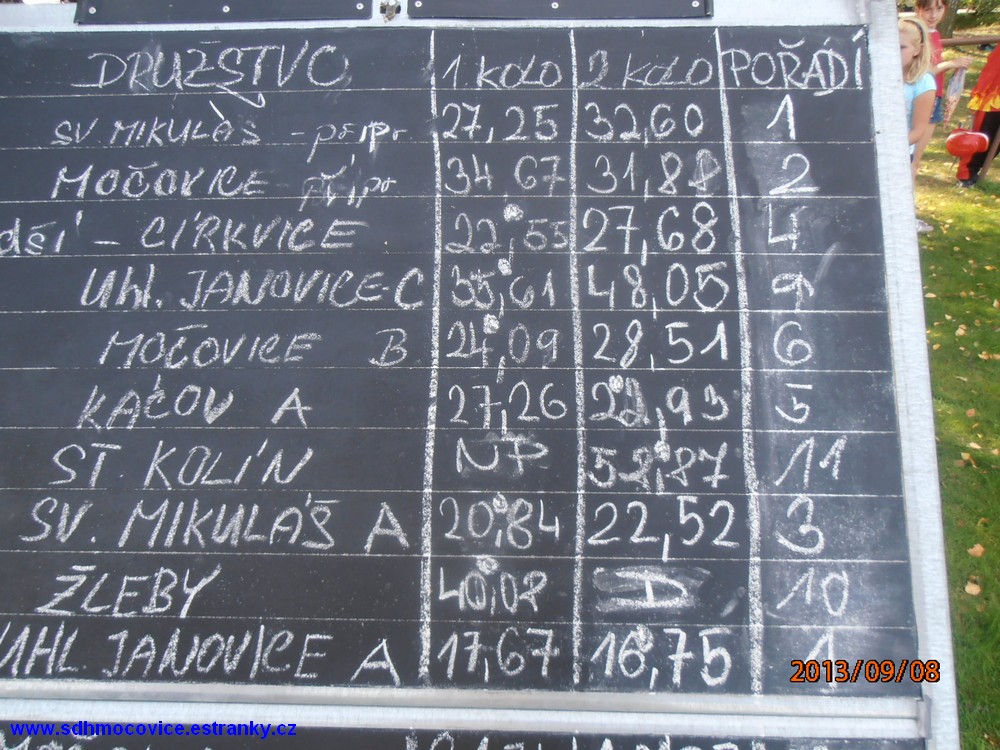 DRUŽSTVO 1. kolo 2 kolo POŘADÍ
SV. MIKULÁŠ - příipr 27,25 32,60 1
MOČOVICE - příipr 34,67 31,88 2
dší - CÍRKVICE 22,55 27,68 4
Uhl. JANOVICE-C 35,61 48,05 9
MOČOVICE B 24,09 28,51 6
KÁČOV A 27,26 22,93 5
ST. KOLÍN NP 52,87 11
SV. MIKULÁŠ A 20,84 22,52 3
ŽLEBY 40,02 D 10
UHL. JANOVICE A 17,67 16,75 1
2013/09/08
www.sdhmocovice.estranky.cz